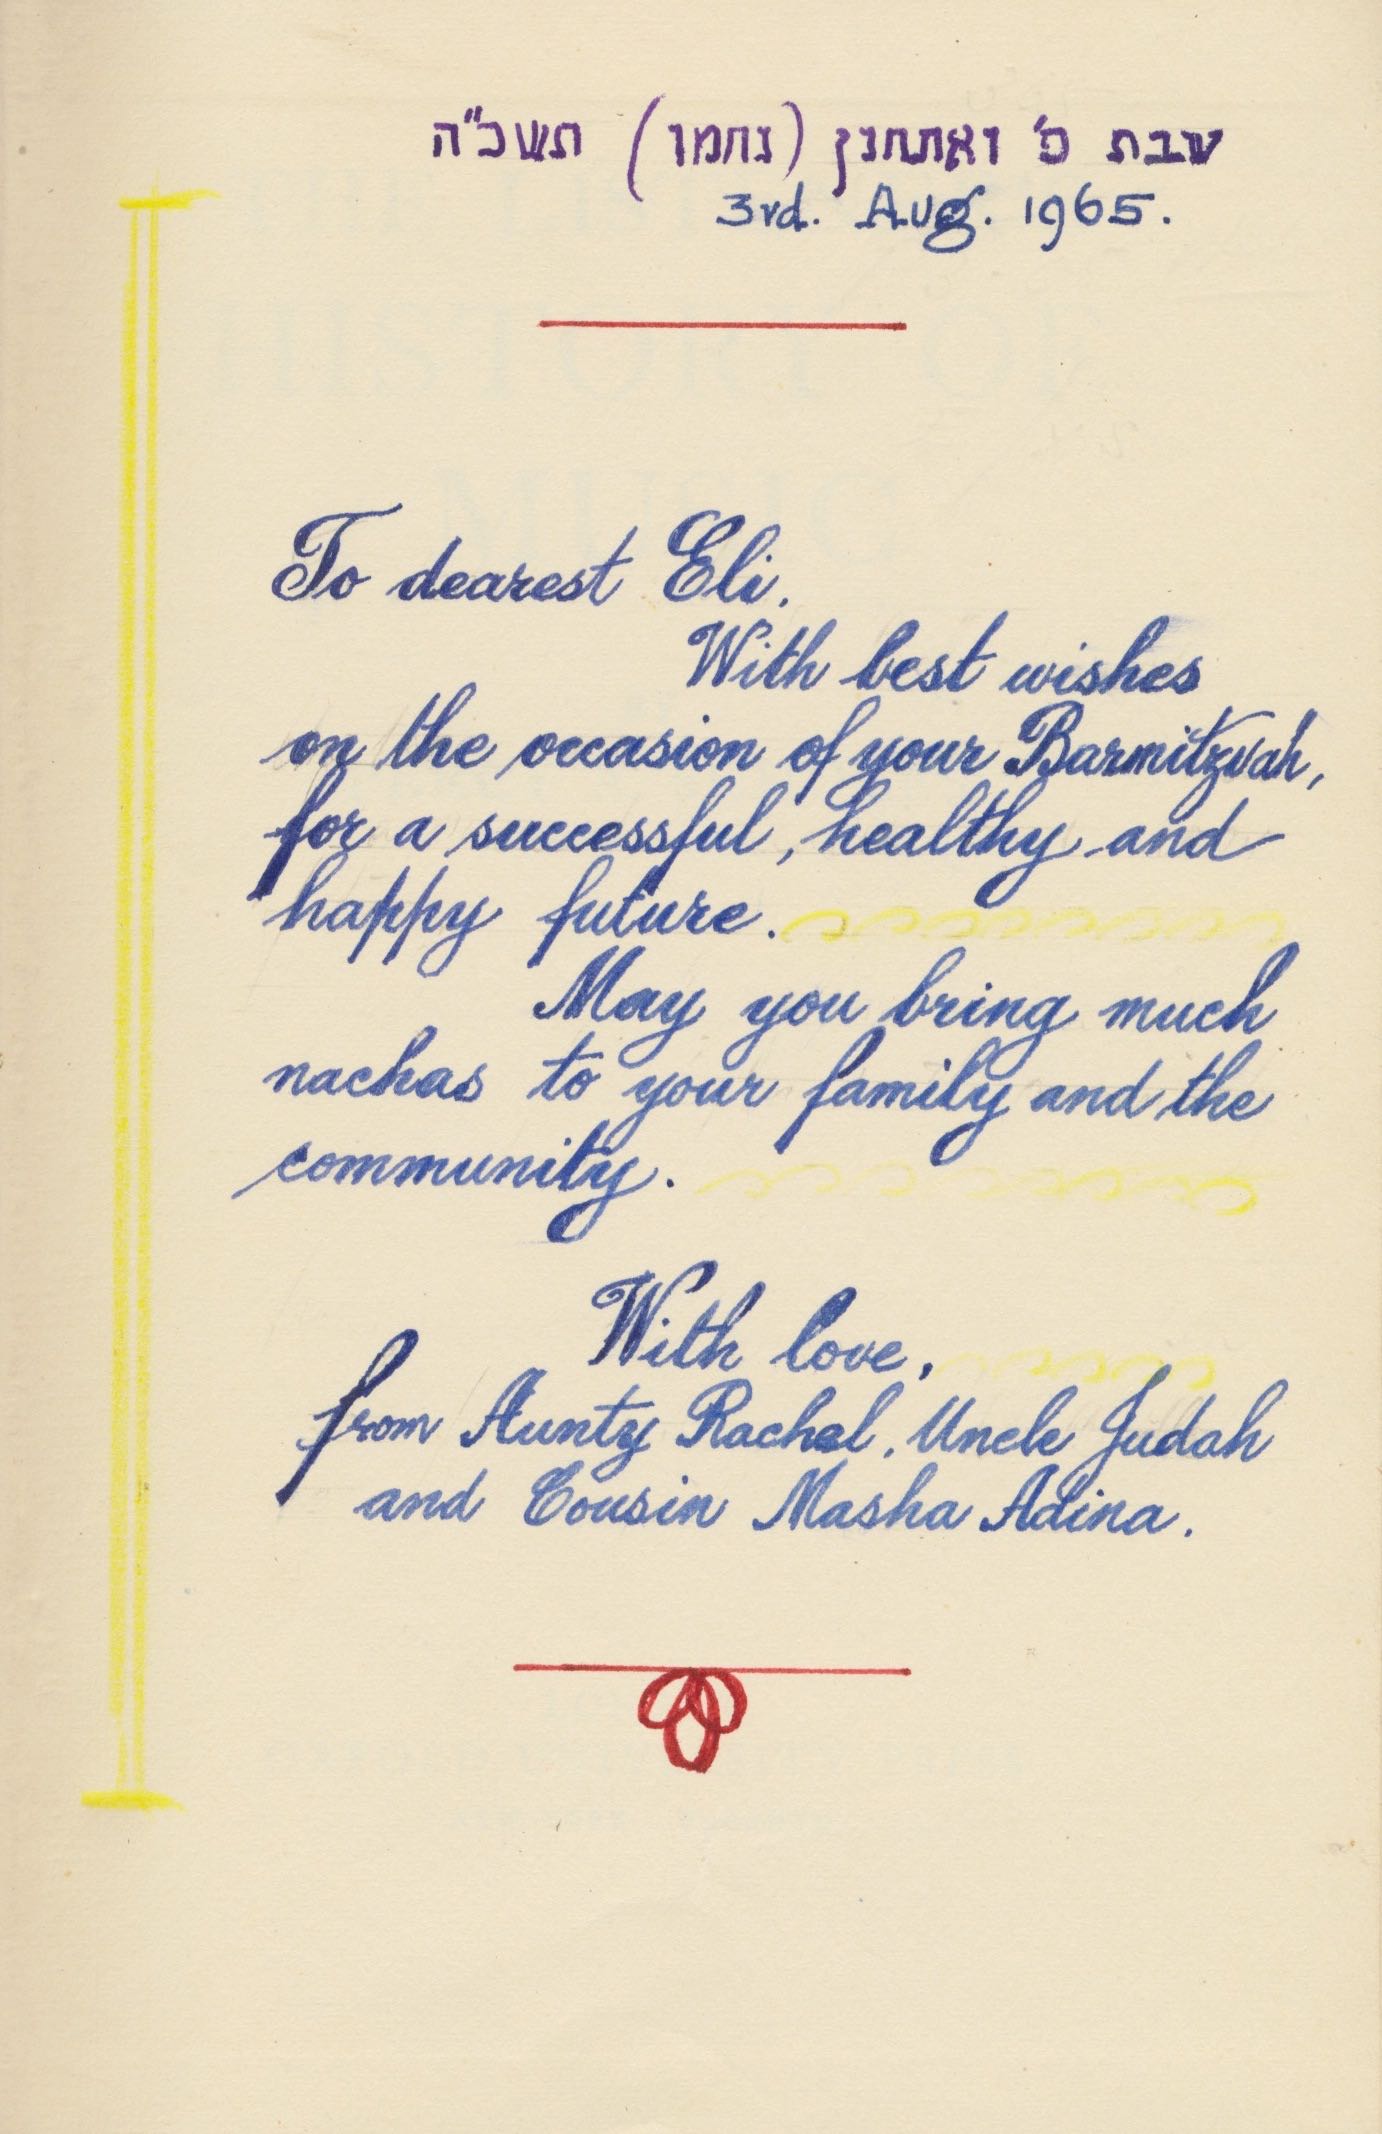 שבת פ' ואתחנן (נחמו) תשכ"ה
3rd. Aug. 1965.
To dearest Eli,
With best wishes
on the occasion of your Barmitzvah,
for a successful, healthy and
happy future.
May you bring much
nachas to your family and the
community.
With love,
from Aunty Rachel, Uncle Judah
and Cousin Masha Adina.